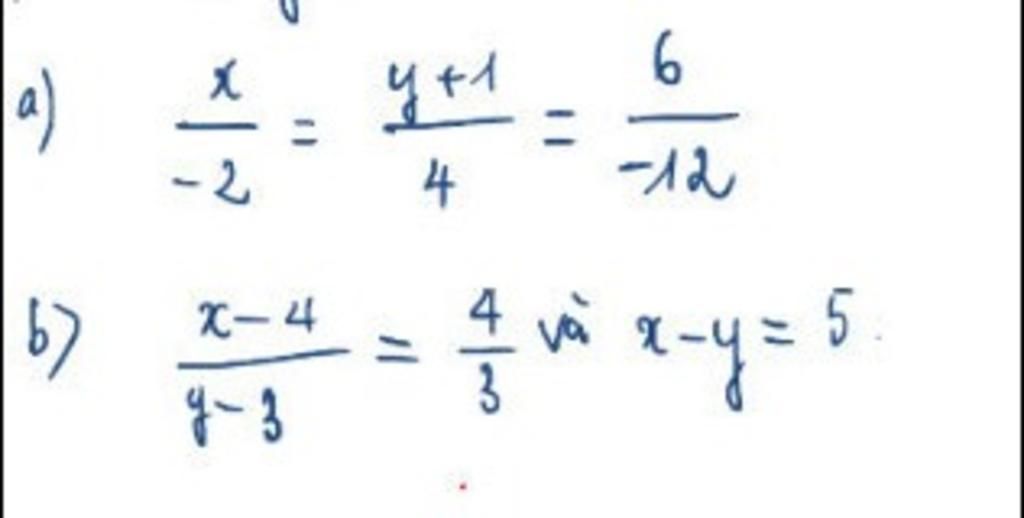 a) x/-2 = y+1/4 = 6/-12
b) x-4/y-3 = 4/3 và x-y = 5